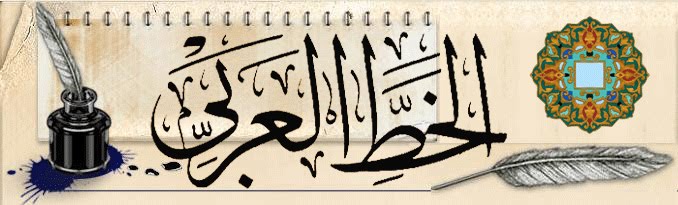 الخطّ العربيّ